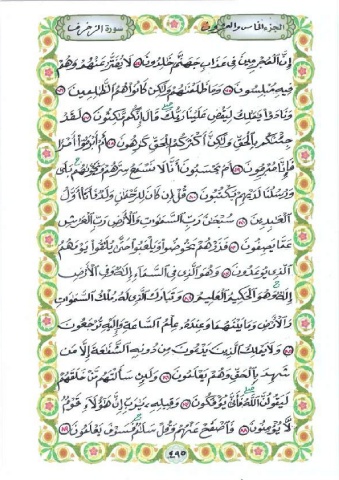 الجزء الخامس والعشرون
سورة الزخرف
إن المجرمين في عذاب جهنم خلدون ٧٤ لا يفتر عنهم وهم
فيه مبلسون ٧٥ وما ظلمنهم ولكن كانوا هم الظلمين ٧٦
ونادوا يملك ليقض علينا ربك قال إنكم مكثون ٧٧ لقد
جئنكم بالحق ولكن أكثركم للحق كرهون ٧٨ أم أبرموا أمرا
فإنا مبرمون ٧٩ أم يحسبون أنا لا نسمع سرهم ونجوىهم بلى
ورسلنا لديهم يكتبون ٨٠ قل إن كان للرحمن ولد فأنا أول
العبدين ٨١ سبحن رب السموت والأرض رب العرش
عما يصفون ٨٢ فذرهم يخوضوا ويلعبوا حتى يلقوا يومهم
الذي يوعدون ٨٣ وهو الذي في السماء إله وفي الأرض
إله وهو الحكيم العليم ٨٤ وتبارك الذي له ملك السموت
والأرض وما بينهما وعنده علم الساعة وإليه ترجعون
٨٥ ولا يملك الذين يدعون من دونه الشفعة إلا من
شهد بالحق وهم يعلمون ٨٦ ولئن سألتهم من خلقهم
ليقولن الله فأنى يؤفكون ٨٧ وقيله يرب إن هؤلاء قوم
لا يؤمنون ٨٨ فاصفح عنهم وقل سلم فسوف يعلمون ٨٩
٤٩٥